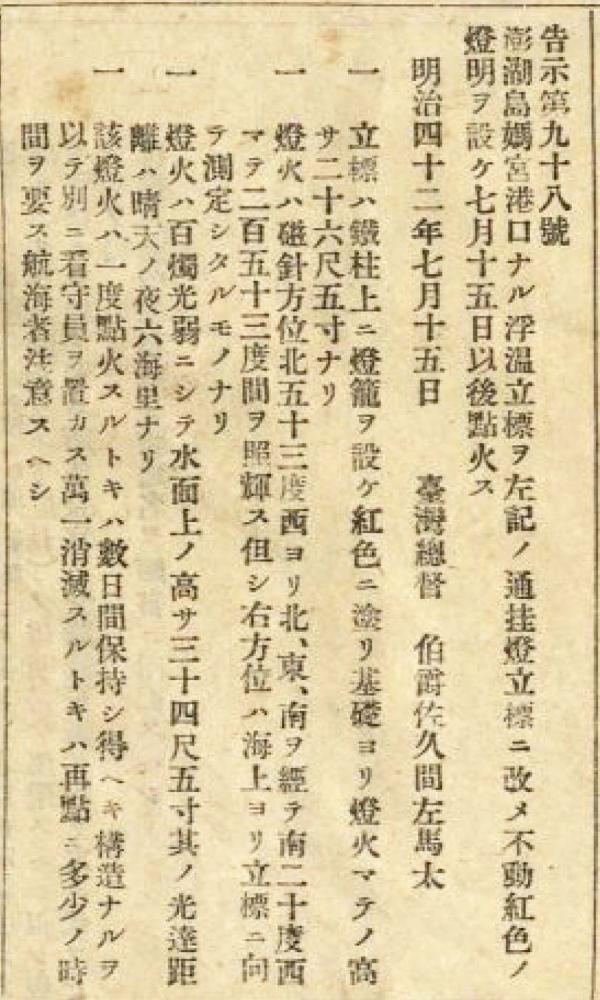 告示第九十八號
澎湖島媽宮港口ナル浮温立標ヲ左記ノ通挂燈立標ニ改メ不動紅色ノ
燈明ヲ設ケ七月十五日以後點火ス
明治四十二年七月十五日 臺灣總督 伯爵佐久間左馬太
一 立標ハ鐵柱上ニ燈籠ヲ設ケ紅色ニ塗リ基礎ヨリ燈火マテノ高
サ二十六尺五寸ナリ
一 燈火ハ磁針方位北五十三度西ヨリ北、東、南ヲ經テ南二十度西
マテ二百五十三度間ヲ照輝ス但シ右方位ハ海上ヨリ立標ニ向
テ測定シタルモノナリ
一 燈火ハ百燭光弱ニシテ水面上ノ高サ三十四尺五寸其ノ光達距
離ハ晴天ノ夜六海里ナリ
一 該燈火ハ一度點火スルトキハ數日間保持シ得ヘキ構造ナルヲ
以テ別ニ看守員ヲ置カス萬一消滅スルトキハ再點ニ多少ノ時
間ヲ要ス航海者注意スヘシ